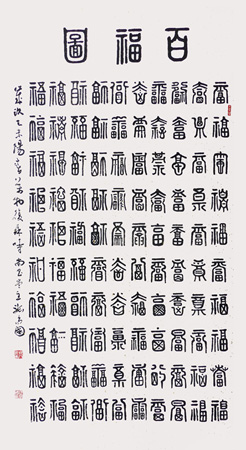 百福圖
福福福福福福福福福福
福福福福福福福福福福
福福福福福福福福福福
福福福福福福福福福福
福福福福福福福福福福
福福福福福福福福福福
福福福福福福福福福福
福福福福福福福福福福
福福福福福福福福福福
福福福福福福福福福福
歲次乙未陽春